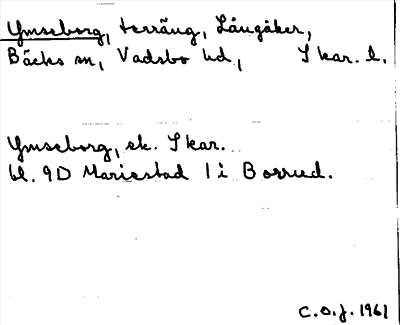 Ymseborg, terräng, Långåker,
Bäcks sn, Vadsbo hd, Skar. l.
Ymseborg, ek. Skar.
bl. 9D Mariestad 1 i Borrud.
C.O.J. 1961